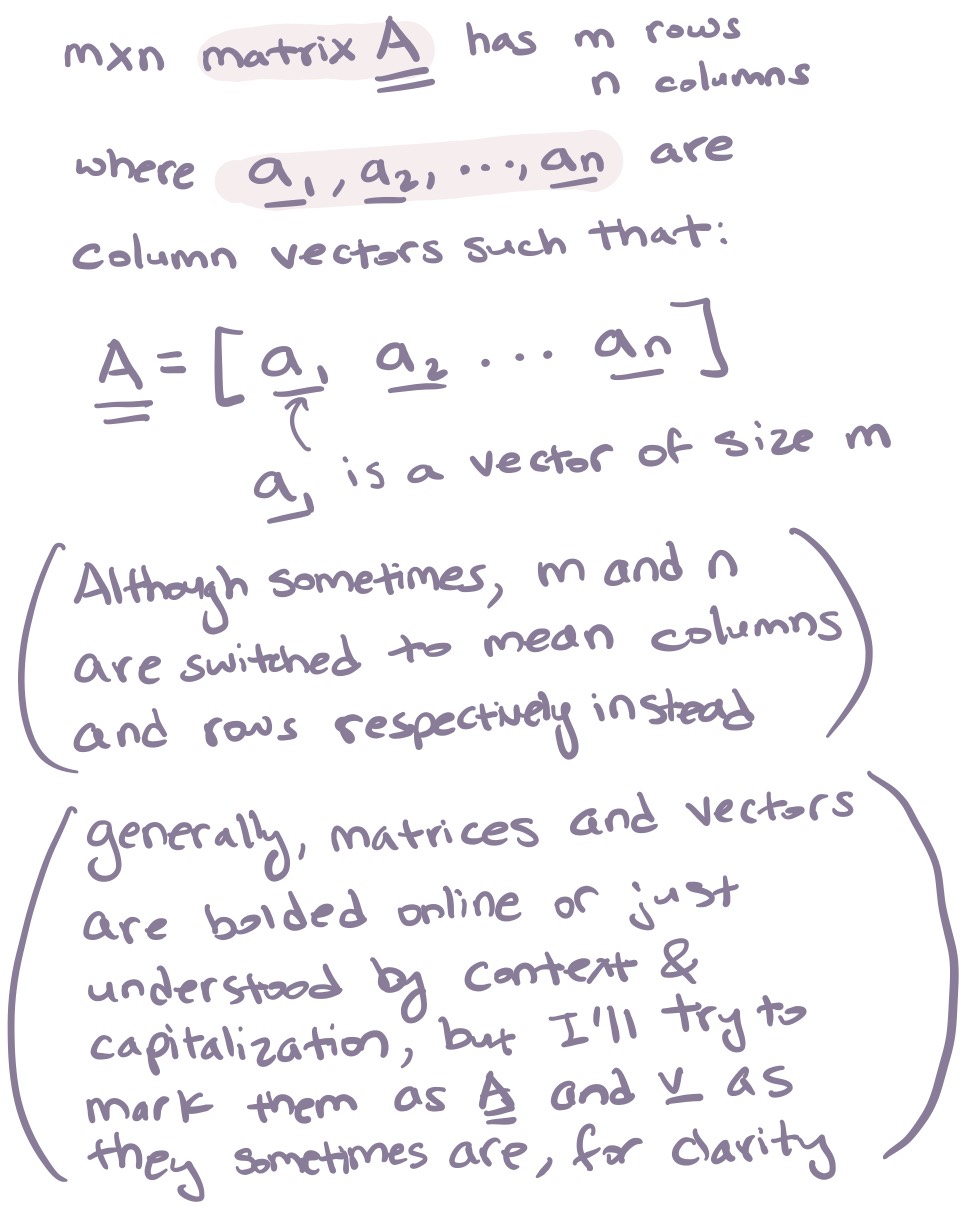 mxn matrix A has m rows
n columns
where a₁, a₂, ..., an are
column vectors such that:
A = [ a₁ a₂ ... an ]
a₁ is a vector of size m
(Although sometimes, m and n
are switched to mean columns
and rows respectively instead)
(generally, matrices and vectors
are bolded online or just
understood by context &
capitalization, but I'll try to
mark them as A and v as
they sometimes are, for clarity)